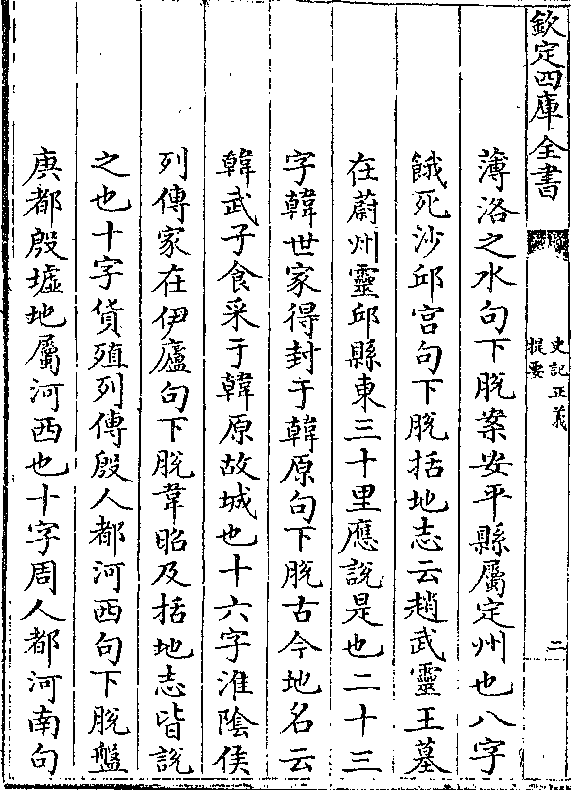 欽定四庫全書
史記正義
提要
二
薄洛之水句下脫案安平縣屬定州也八字
餓死沙邱宫句下脫括地志云趙武靈王墓
在蔚州靈邱縣東三十里應說是也二十三
字韓世家得封于韓原句下脫古今地名云
韓武子食采于韓原故城也十六字淮陰侯
列傳家在伊廬句下脫韋昭及括地志皆說
之也十字貨殖列傳殷人都河西句下脫盤
庚都殷墟地屬河西也十字周人都河南句